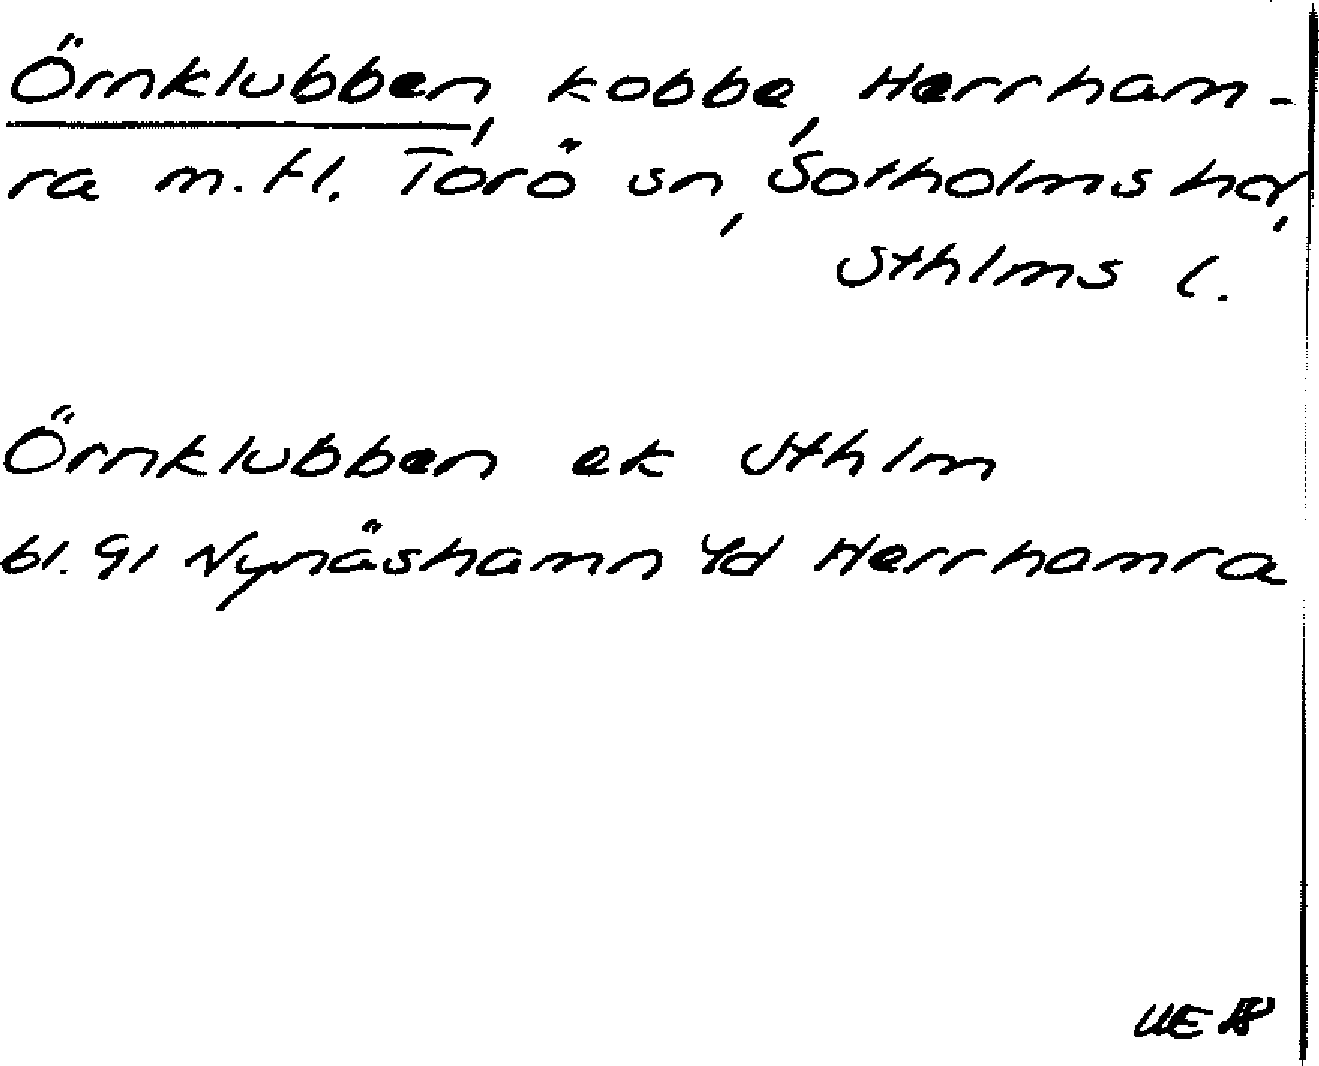 Örnklubben, kobbe, Herrham-
ra m. fl. Torö sn, Sotholms hd,
Sthlms l.
Örnklubben ek Sthlm
bl. 91 Nynäshamn 4d Herrhamra